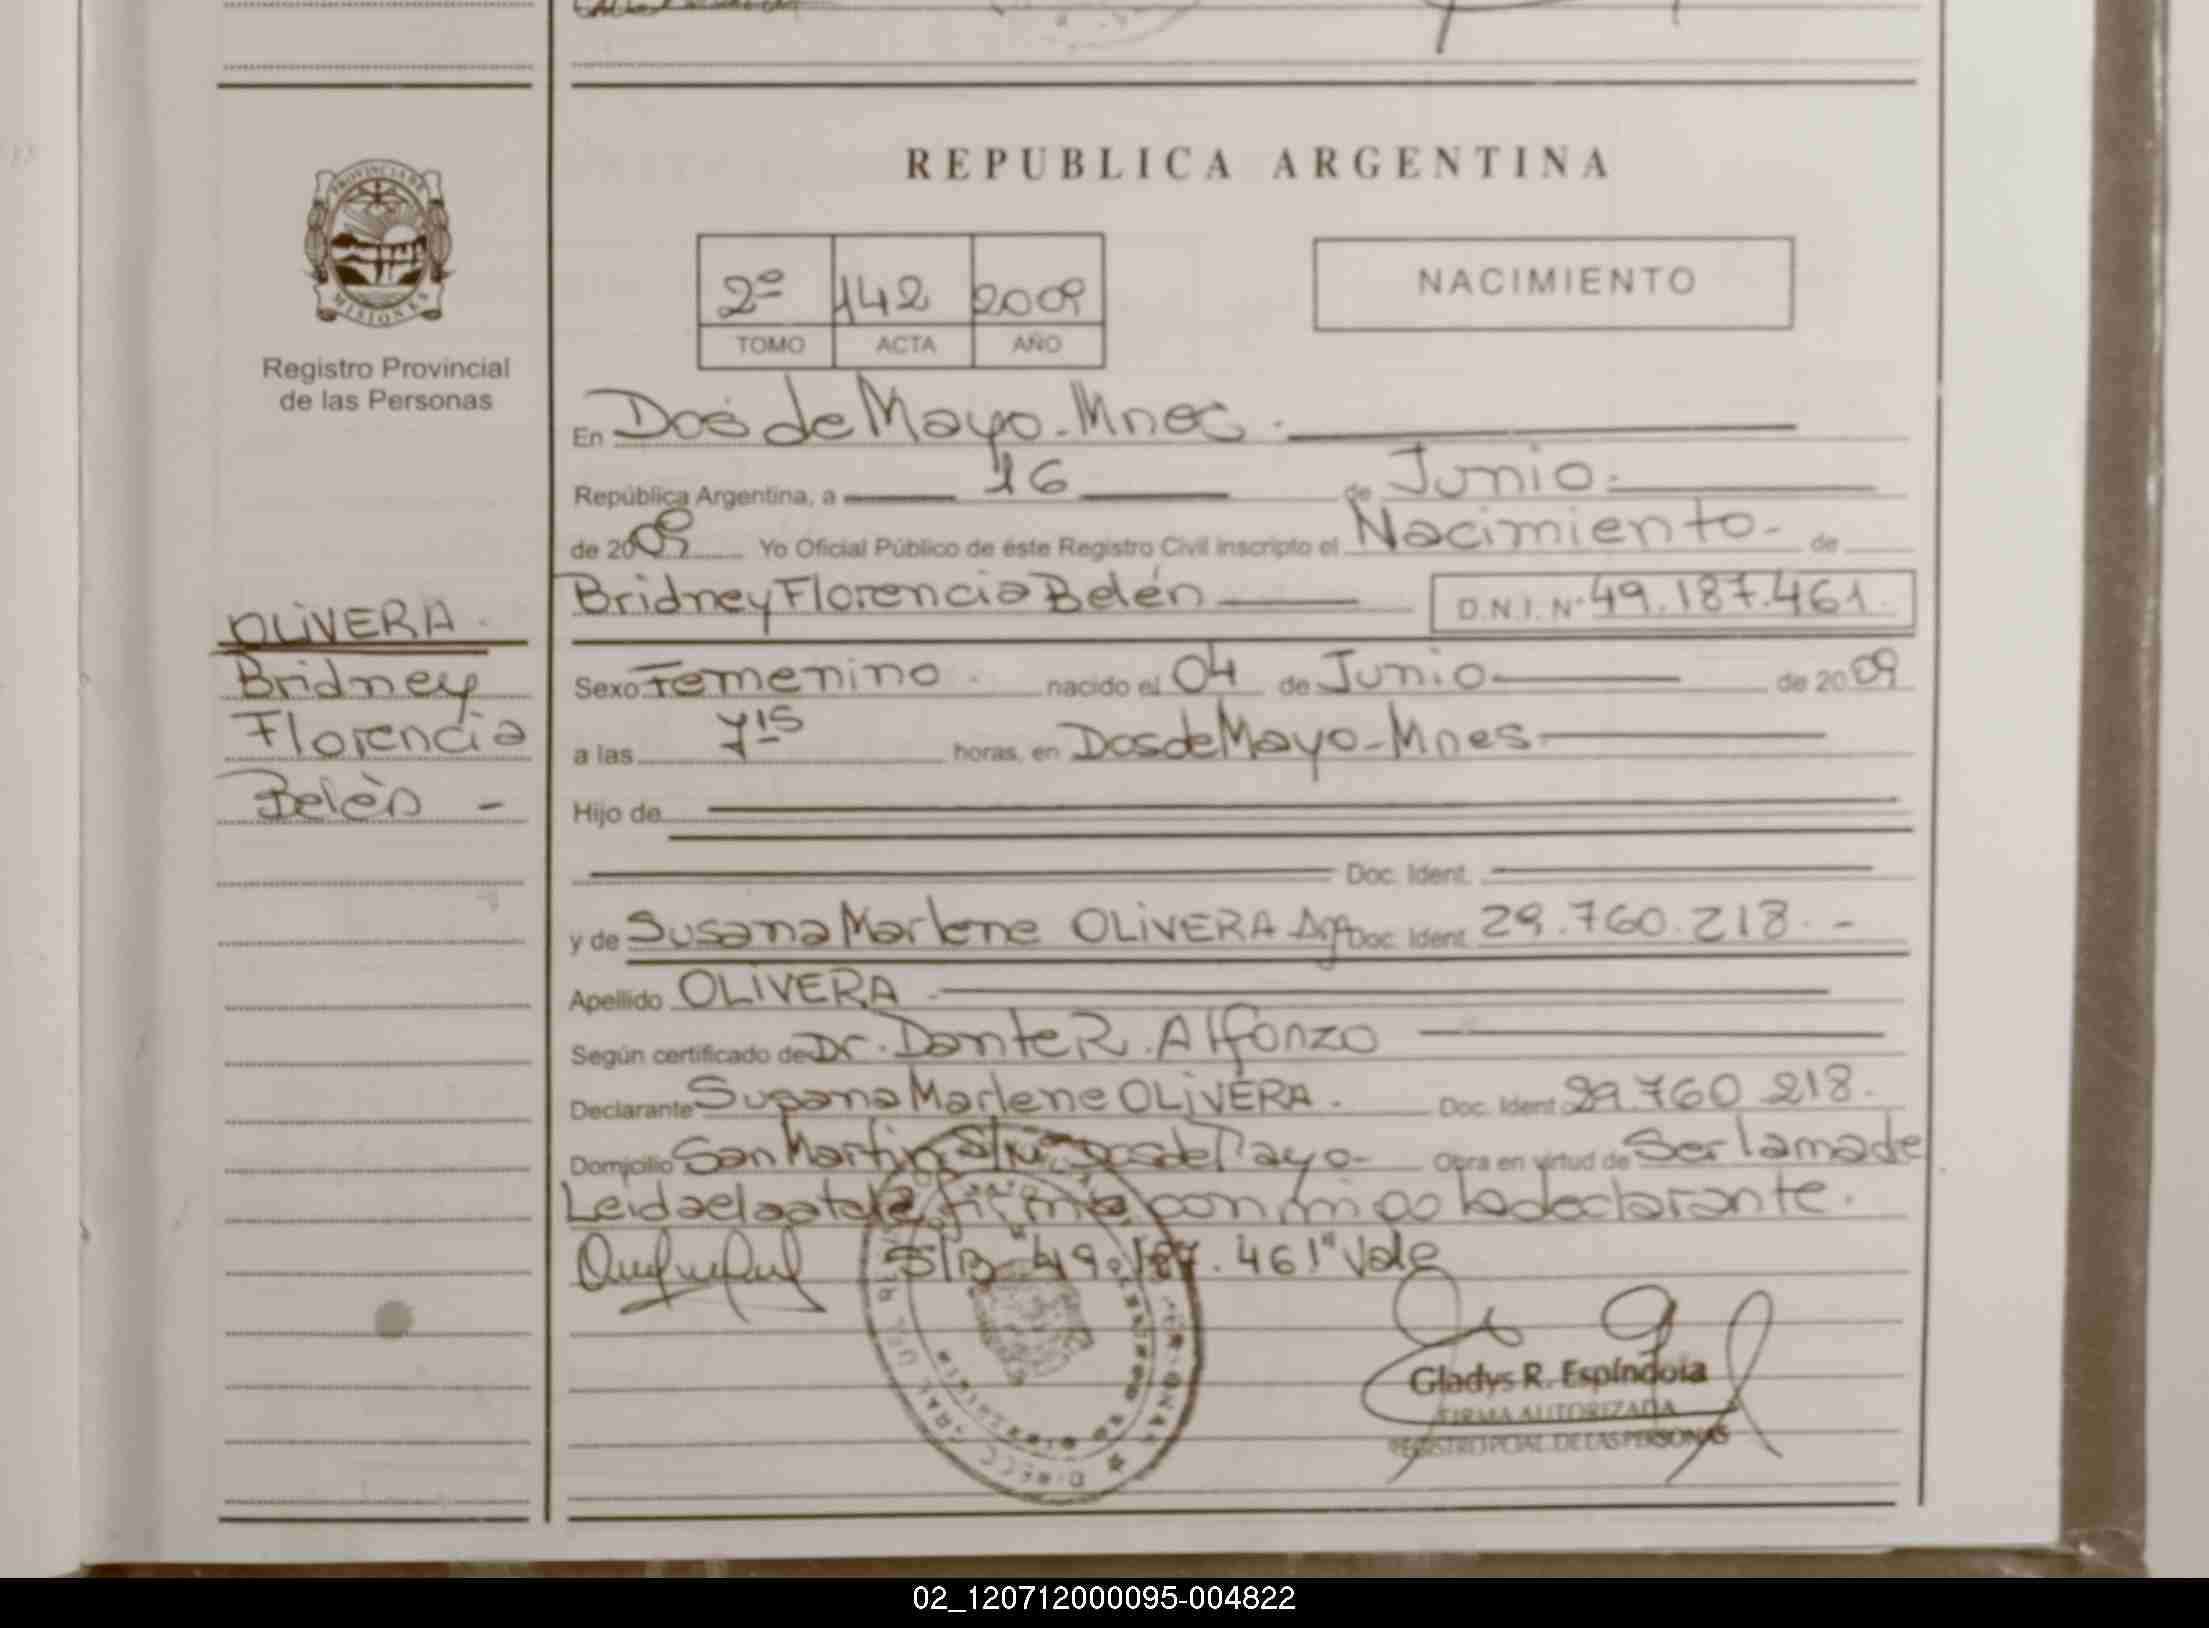 REPUBLICA ARGENTINA
PROVINCIA DE
MISIONES
Registro Provincial
de las Personas
2º 142 2009
TOMO ACTA AÑO
NACIMIENTO
En Dos de Mayo-Mnes.
República Argentina, a 16 de Junio.
de 2009 Yo Oficial Público de éste Registro Civil inscripto el Nacimiento- de
Bridney Florencia Belén D.N.I. Nº 49.187.461.
OLIVERA.
Bridney
Florencia
Belén -
Sexo Femenino. nacido el 04 de Junio de 2009
a las 7 15 horas, en Dos de Mayo-Mnes.
Hijo de
Doc. Ident.
y de Susana Marlene OLIVERA Arg Doc. Ident. 29.760.218. -
Apellido OLIVERA
Según certificado de Dr. Dante R. Alfonzo
Declarante Susana Marlene OLIVERA. Doc. Ident. 29.760.218.
Domicilio San Martin S/Nº Dos de Mayo- Obra en virtud de Ser la madre
Leida el acta la firma conmigo la declarante.
S/B 49.187.461" Vale
Gladys R. Espíndola
FIRMA AUTORIZADA
REGISTRO PCIAL. DE LAS PERSONAS
02_120712000095-004822